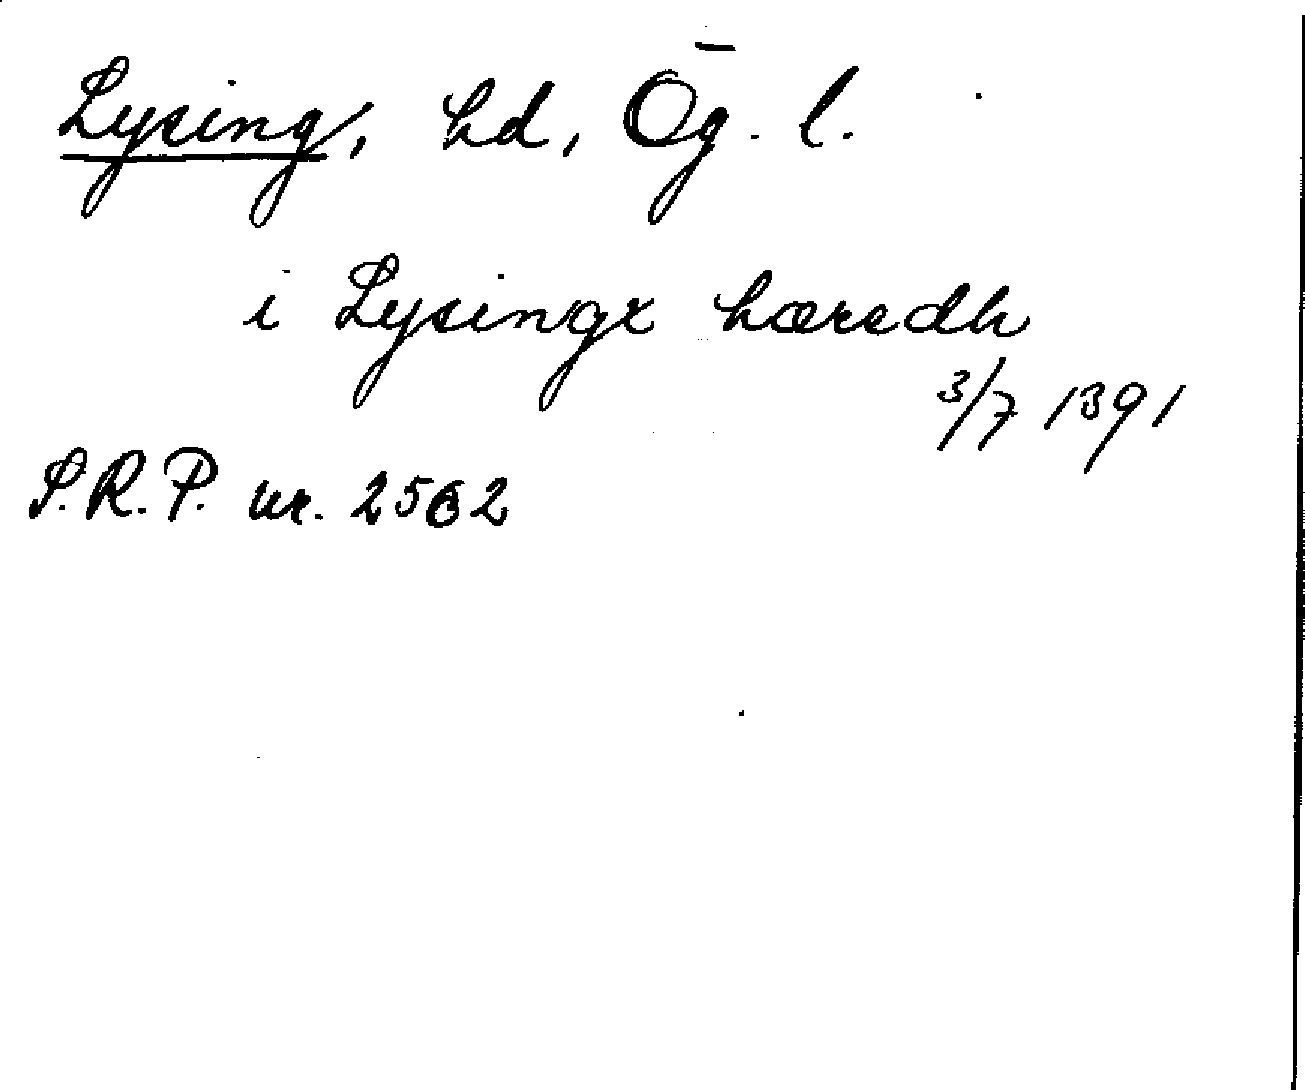 Lysing, hd, Ög. l.
i Lysingx hæredh
3/7 1391
S.R.P. nr. 2562